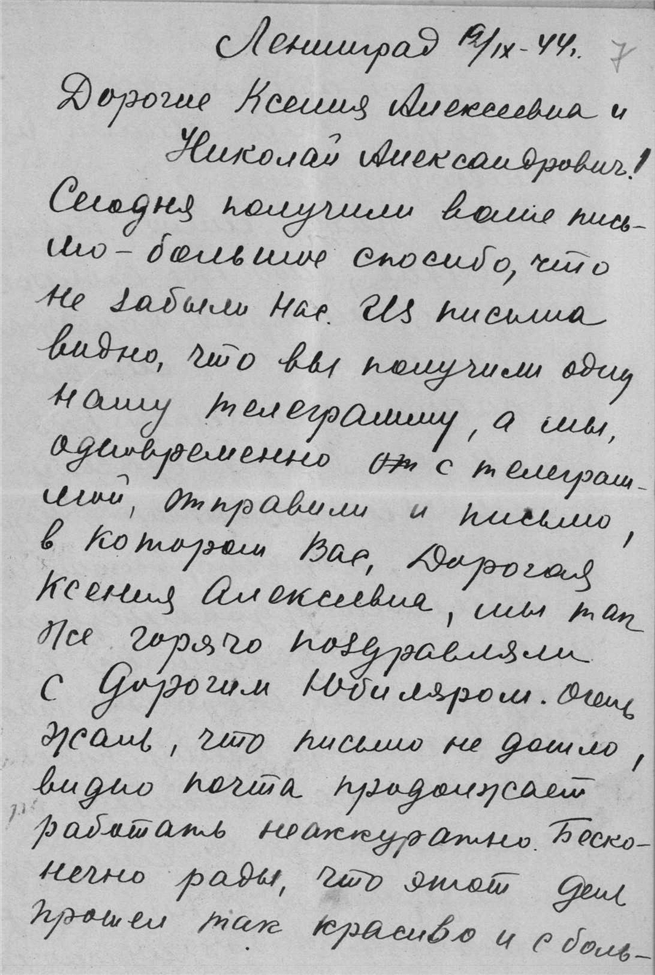 Ленинград 19/IX-44г. 7
Дорогие Ксения Алексеевна и
Николай Александрович!
Сегодня получили ваше пись-
мо - большое спасибо, что
не забыли нас. Из письма
видно, что вы получили одну
нашу телеграмму, а мы,
одновременно от с телеграм-
мой, отправили и письмо,
в котором Вас, Дорогая
Ксения Алексеевна, мы так
же горячо поздравляли
с Дорогим Юбиляром. Очень
жаль, что письмо не дошло,
видно почта продолжает
работать неаккуратно. Беско-
нечно рады, что этот день
прошел так красиво и с боль-